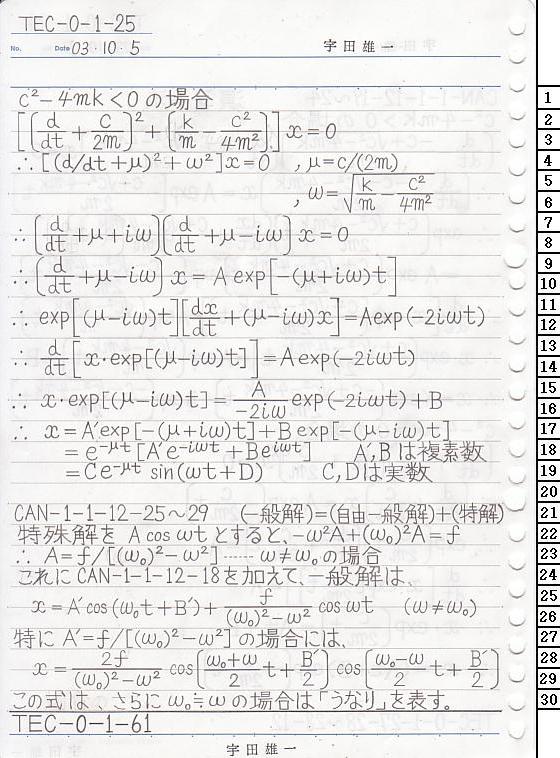 TEC-0-1-25
No. Date 03・10・5 宇田雄一
c²-4mk<0 の場合
[(d/dt + c/2m)² + (k/m - c²/4m²)] x=0
∴ [(d/dt+μ)²+ω²]x=0 , μ=c/(2m)
, ω=√(k/m - c²/4m²)
∴ (d/dt+μ+iω)(d/dt+μ-iω) x=0
∴ (d/dt+μ-iω) x = A exp[-(μ+iω)t]
∴ exp[(μ-iω)t][dx/dt+(μ-iω)x]=Aexp(-2iωt)
∴ d/dt[x・exp[(μ-iω)t]]=A exp(-2iωt)
∴ x・exp[(μ-iω)t]= A/-2iω exp(-2iωt)+B
∴ x=A'exp[-(μ+iω)t]+B exp[-(μ-iω)t]
=e^-μt [A'e^-iωt +Be^iωt] A',Bは複素数
=Ce^-μt sin(ωt+D) C,Dは実数
CAN-1-1-12-25〜29 (一般解)=(自由一般解)+(特解)
特殊解を A cos ωt とすると、-ω²A+(ω₀)²A=f
∴ A=f/[(ω₀)²-ω²] …… ω≠ω₀ の場合
これに CAN-1-1-12-18を加えて、一般解は、
x=A'cos(ω₀t+B')+ f/(ω₀)²-ω² cos ωt (ω≠ω₀)
特に A'=f/[(ω₀)²-ω²] の場合には、
x= 2f/(ω₀)²-ω² cos(ω₀+ω/2 t+B'/2) cos(ω₀-ω/2 t+B'/2)
この式は、さらに ω₀≒ω の場合は「うなり」を表す。
TEC-0-1-61
宇田雄一
1
2
3
4
5
6
7
8
9
10
11
12
13
14
15
16
17
18
19
20
21
22
23
24
25
26
27
28
29
30